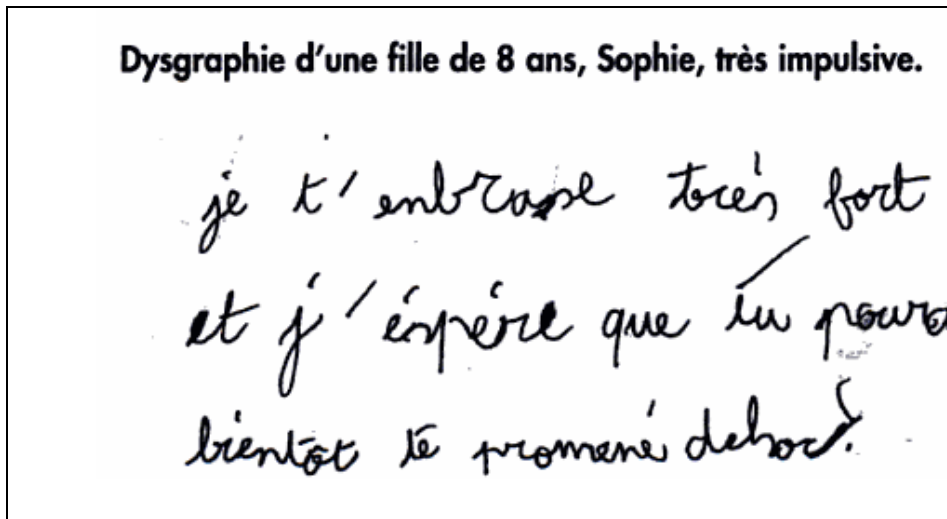 Dysgraphie d'une fille de 8 ans, Sophie, très impulsive.
je t'enbrasse trés fort
et j'éspére que tu pouro
bientôt té promené dehors.